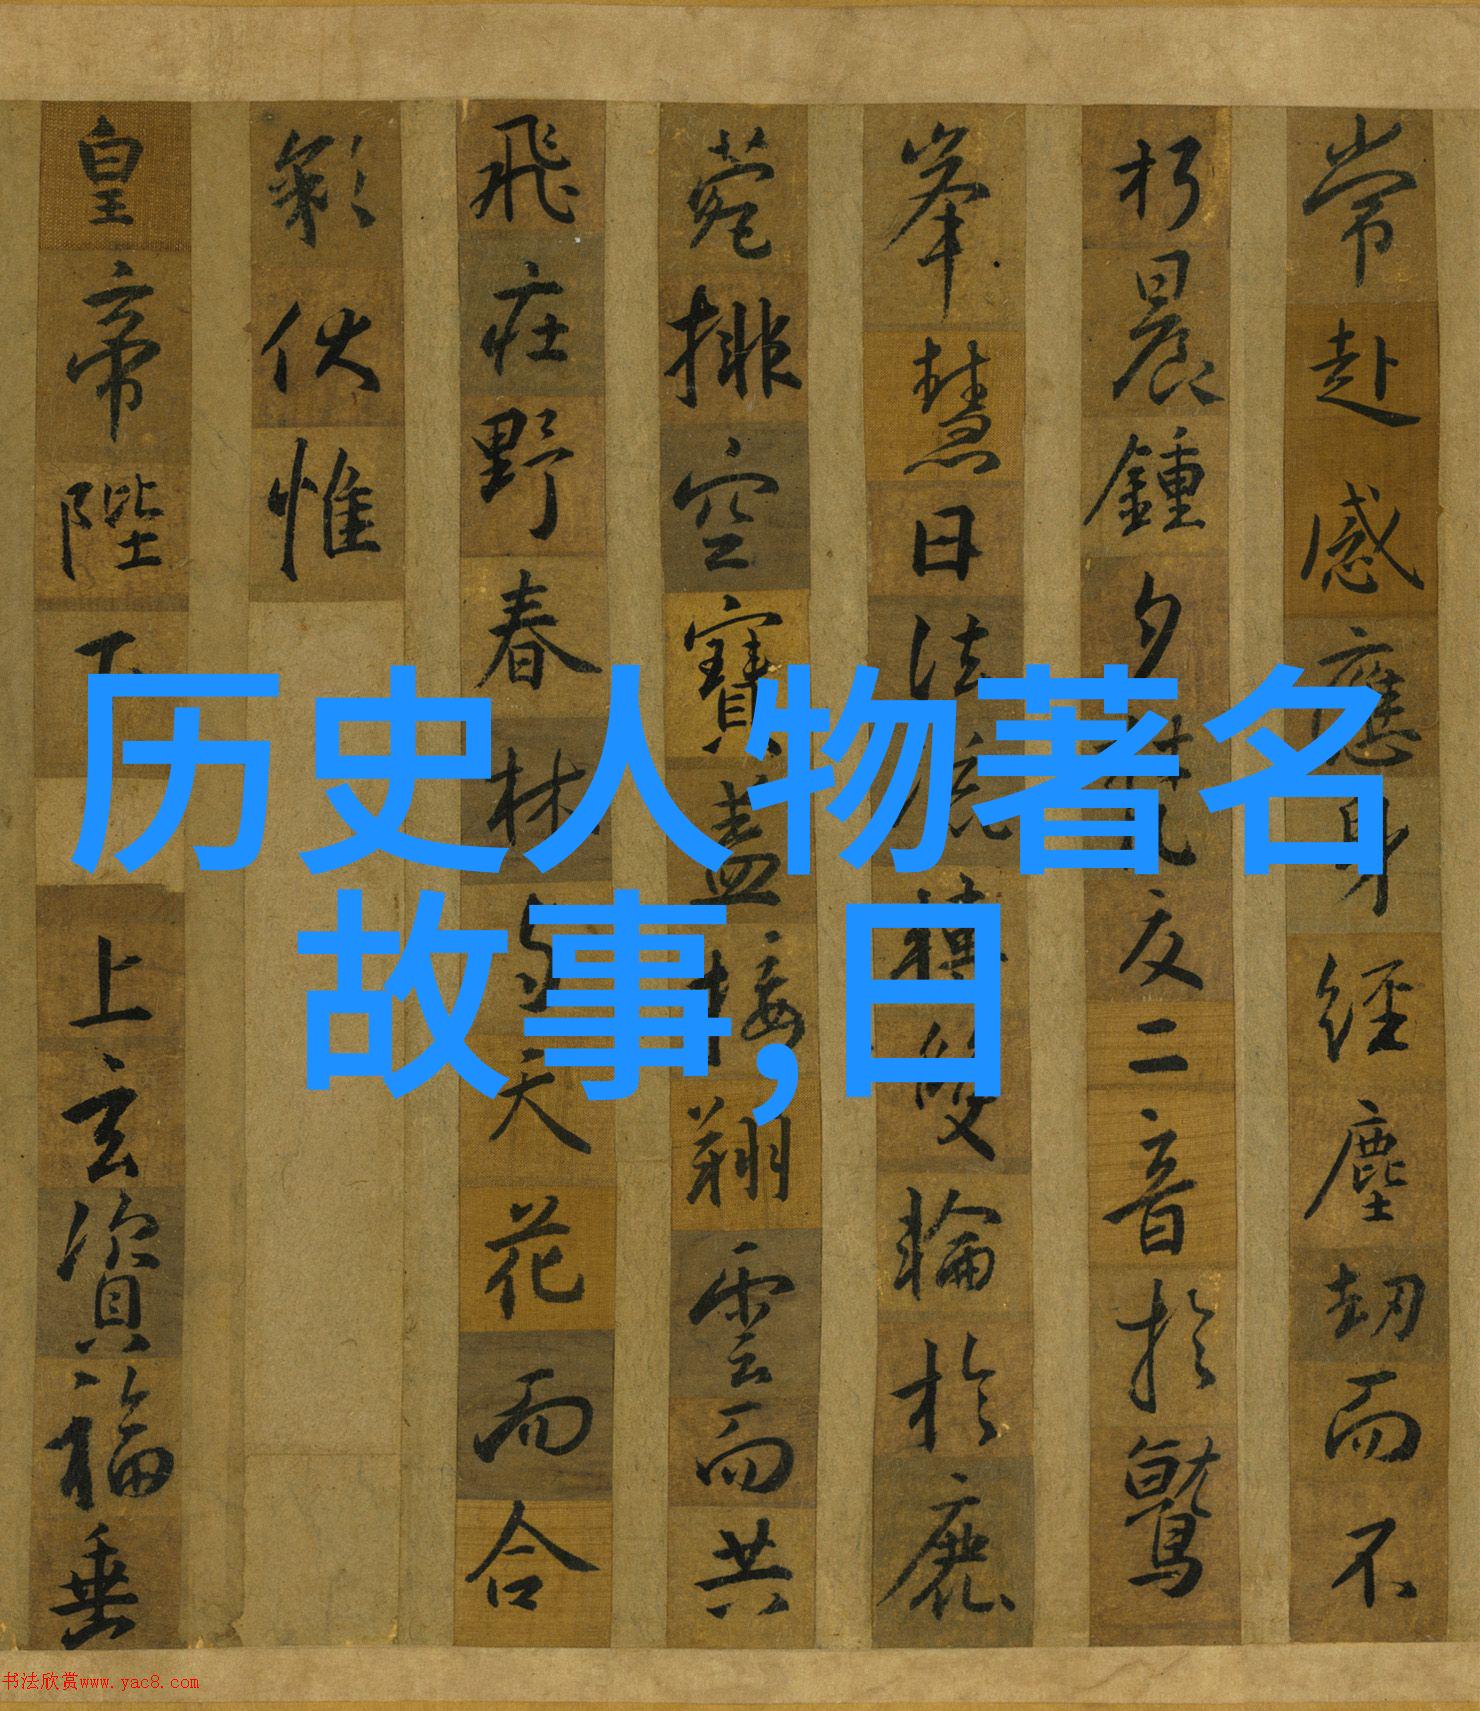 常赴感應身經塵劫而不
朽晨鍾夕梵交二音於鷲
峯慧日法流轉雙輪於鹿
菀排空寶蓋接翔雲而共
飛莊野春林与天花而合
彩伏惟
皇帝陛下
上玄資福垂
历史人物著名
故事,日
书法欣赏www.yac8.com